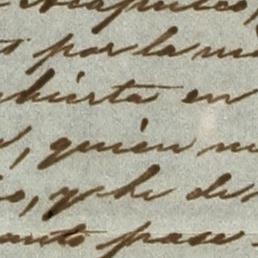 Acapulco,
por la
bierta en
, quien
o, y he de
anto pase